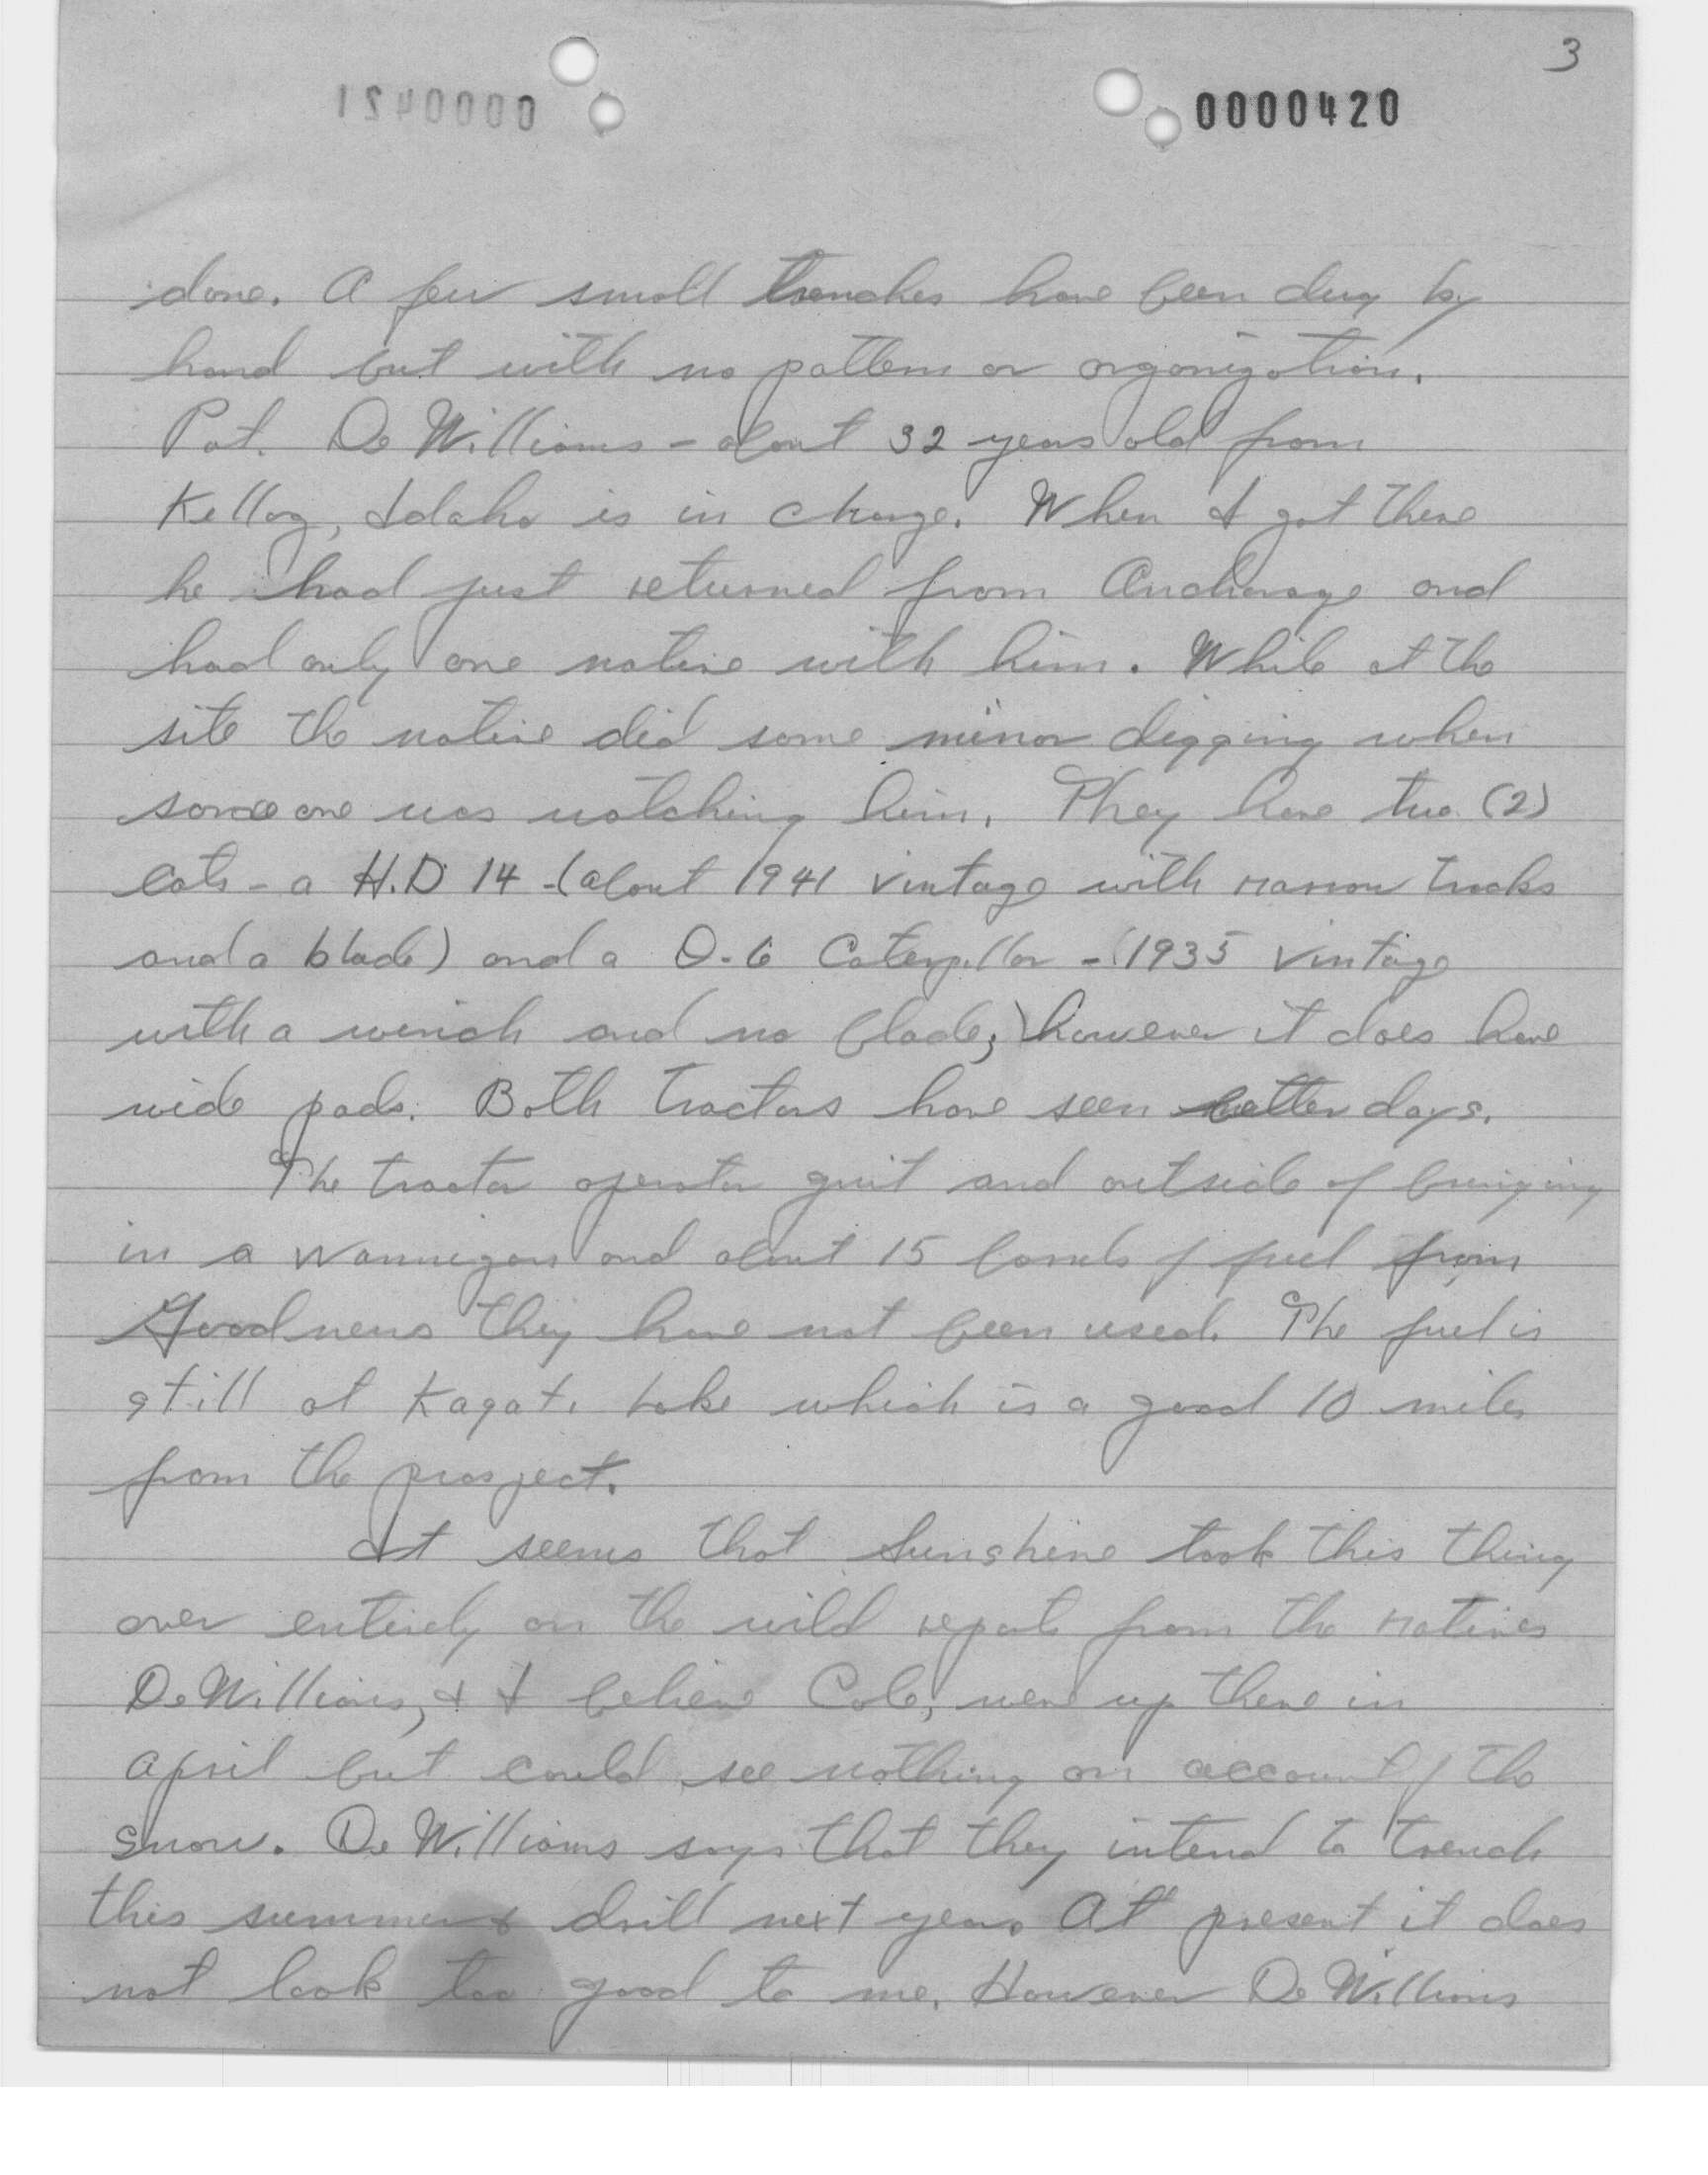 3
0000420
0000421
done. A few small trenches have been dug by
hand but with no pattern or organization.
Pat. DeWilliams - about 32 years old from
Kellog, Idaho is in charge. When I got there
he had just returned from Anchorage and
had only one native with him. While at the
site the native did some minor digging when
someone was watching him. They have two (2)
cats - a H.D 14 - (about 1941 vintage with narrow tracks
and a blade) and a D-6 Caterpillar - (1935 vintage
with a winch and no blade;) however it does have
wide pads. Both tractors have seen better days.
The tractor operator quit and outside of bringing
in a Wannigan and about 15 barrels of fuel from
Goodnews they have not been used. The fuel is
still at Kagati Lake which is a good 10 miles
from the prospect.
It seems that Sunshine took this thing
over entirely on the wild reports from the natives
DeWilliams, & I believe Cole, were up there in
April but could see nothing on account of the
snow. DeWilliams says that they intend to trench
this summer & drill next year. At present it does
not look too good to me. However DeWilliams